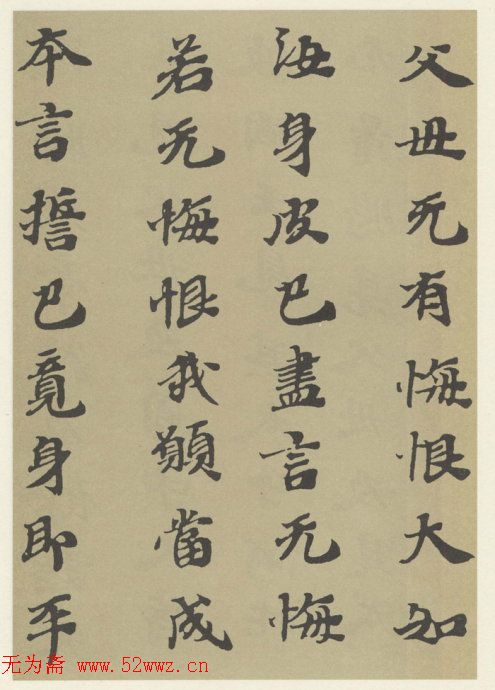 父母无有悔恨大如
汝身皮已盡言无悔
若无悔恨我願當成
本言誓已竟身即平
无为斋 www.52wwz.cn